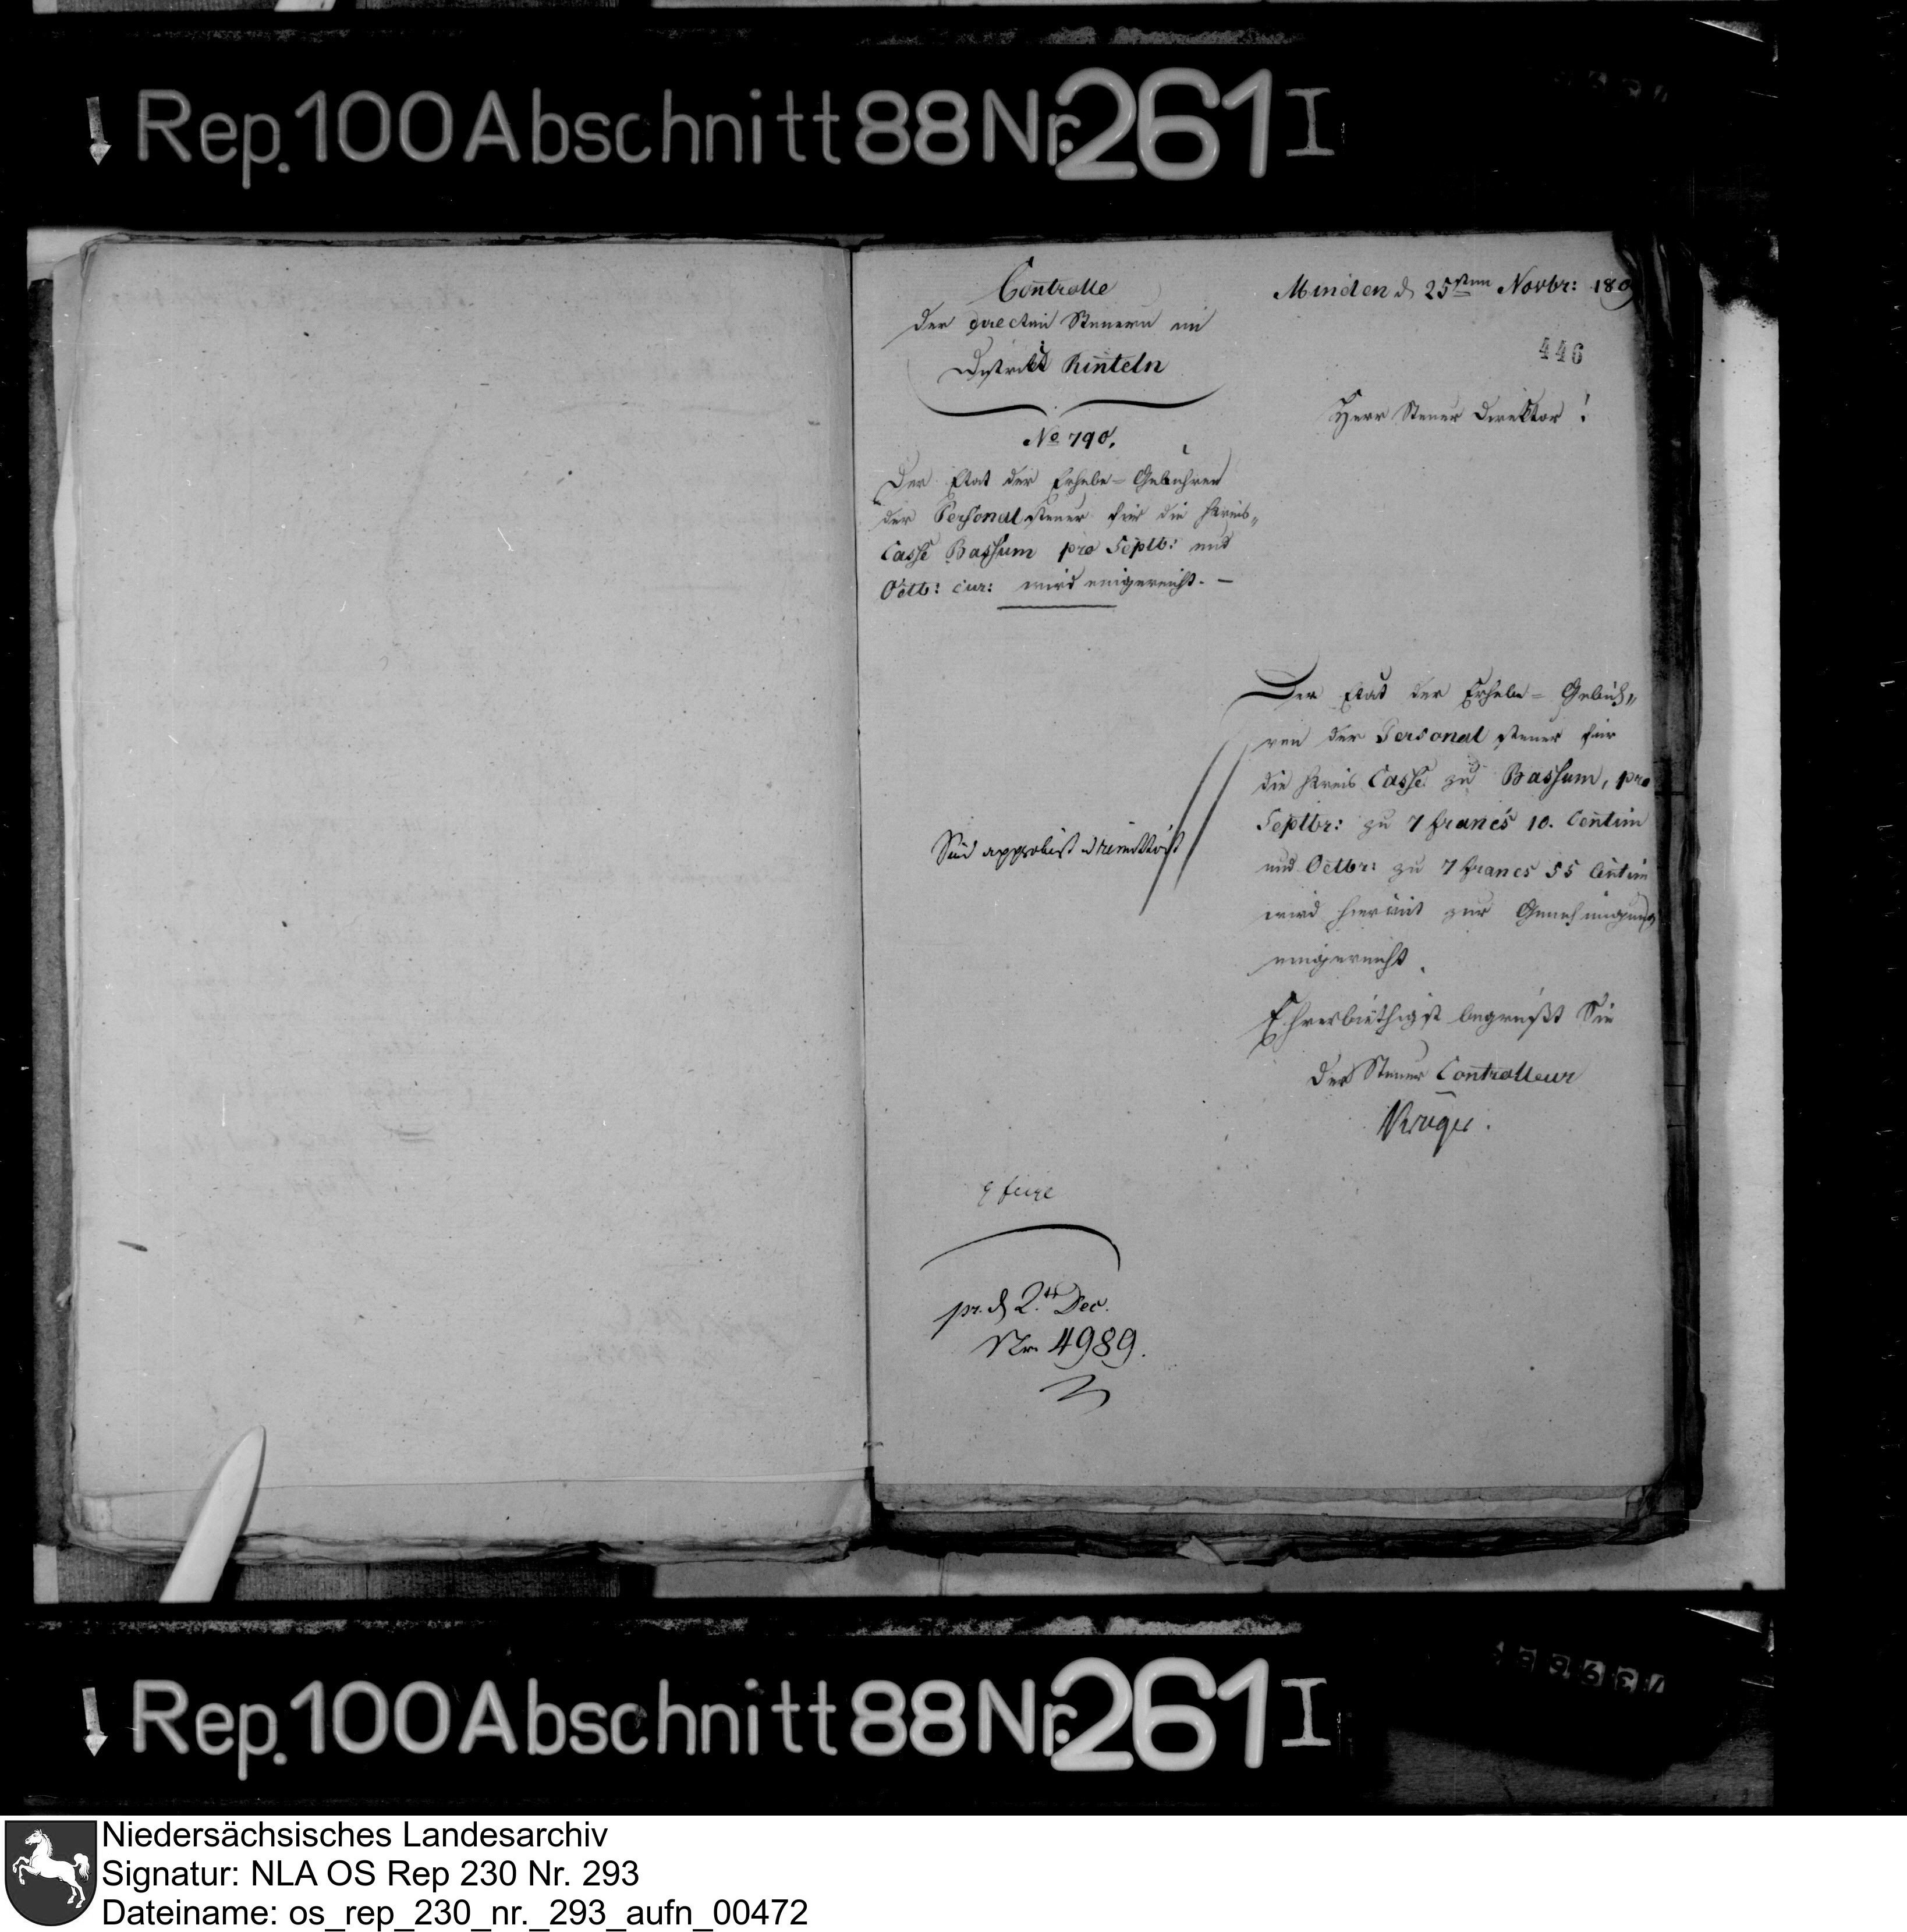 Rep. 100 Abschnitt 88 Nr. 261 I
Controlle
der directen Steuern im
District Rinteln
No 790.
Der Etat der Erhebe-Gebühren
der Personalsteuer für die Kreis„
Casse Bassum pro Septb: und
Octb: cur: wird eingereicht. —
Minden d 25sten Novbr: 180
446
Herr Steuer Direktor !
Der Etat der Erhebe-Gebüh„
ren der Personal steuer für
die Kreis Casse zu Bassum, pro
Septbr: zu 7 francs 10. Centim
und Octbr: zu 7 francs 55 Centim
wird hiermit zur Genehmigung
eingereicht.
Sind approbirt u remittirt
Ehrerbiethigst begrüßt Sie
der Steuer Controlleur
Krüger.
pr. d 2t Dec.
Nr. 4989.
Rep. 100 Abschnitt 88 Nr. 261 I
Niedersächsisches Landesarchiv
Signatur: NLA OS Rep 230 Nr. 293
Dateiname: os_rep_230_nr._293_aufn_00472